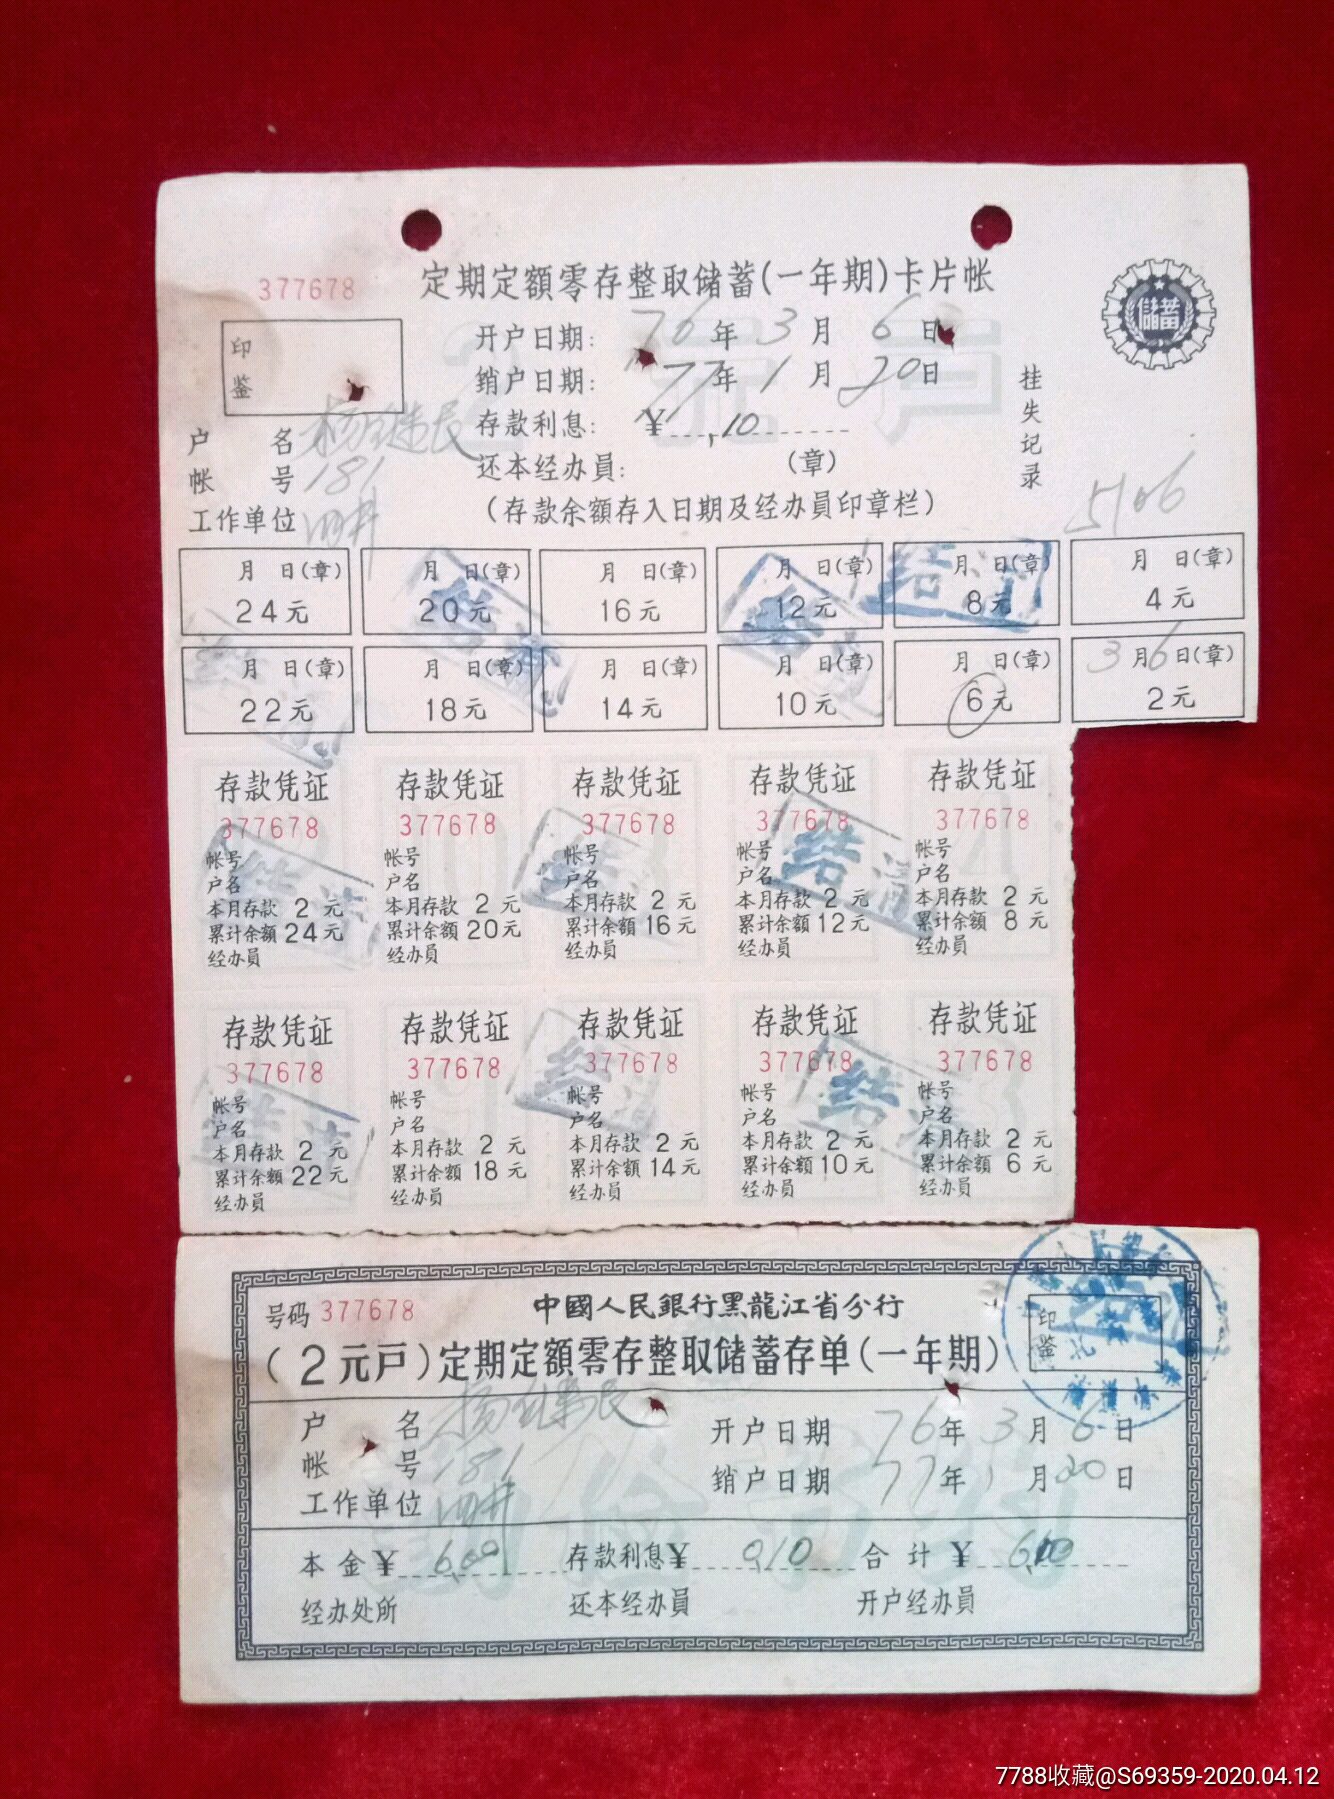 377678
定期定額零存整取储蓄(一年期)卡片帐
儲蓄
印鉴
开户日期: 76年3月6日
销户日期: 77年1月20日
存款利息: ¥ .10
还本经办員: (章)
户名
帐号 181
工作单位
(存款余額存入日期及经办員印章栏)
挂失记录
5106
月 日(章) 月 日(章) 月 日(章) 月 日(章) 月 日(章) 月 日(章)
24元 20元 16元 12元 8元 4元
月 日(章) 月 日(章) 月 日(章) 月 日(章) 月 日(章) 3月6日(章)
22元 18元 14元 10元 6元 2元
结清
存款凭证 存款凭证 存款凭证 存款凭证 存款凭证
377678 377678 377678 377678 377678
帐号 帐号 帐号 帐号 帐号
户名 户名 户名 户名 户名
本月存款 2 元 本月存款 2 元 本月存款 2 元 本月存款 2 元 本月存款 2 元
累计余額24元 累计余額20元 累计余額16元 累计余額12元 累计余額 8 元
经办員 经办員 经办員 经办員 经办員
存款凭证 存款凭证 存款凭证 存款凭证 存款凭证
377678 377678 377678 377678 377678
帐号 帐号 帐号 帐号 帐号
户名 户名 户名 户名 户名
本月存款 2 元 本月存款 2 元 本月存款 2 元 本月存款 2 元 本月存款 2 元
累计余額22元 累计余額18元 累计余額14元 累计余額10元 累计余額 6 元
经办員 经办員 经办員 经办員 经办員
号码 377678
中國人民銀行黑龍江省分行
(2元戸)定期定額零存整取储蓄存单(一年期)
印鉴
户名
帐号 181
工作单位
开户日期 76年3月6日
销户日期 77年1月20日
本金¥ 6.00 存款利息¥ 0.10 合计¥ 6.10
经办处所 还本经办員 开户经办員
7788收藏@S69359-2020.04.12